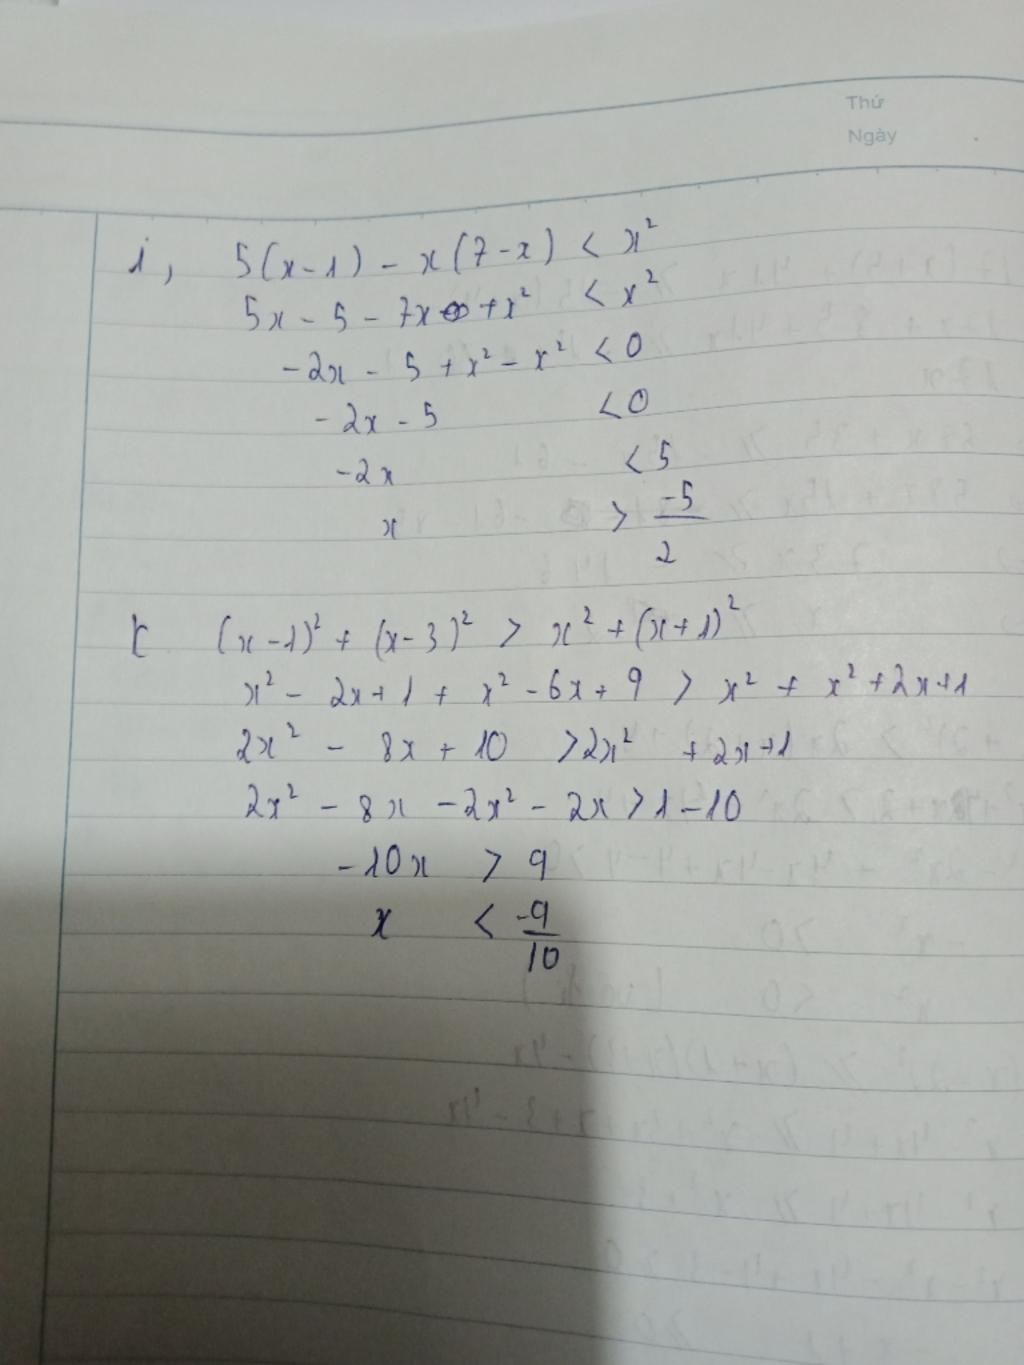 Thứ
Ngày
i, 5(x-1) - x(7-x) < x²
5x - 5 - 7x + x² < x²
-2x - 5 + x² - x² < 0
-2x - 5 < 0
-2x < 5
x > -5/2
(x-1)² + (x-3)² > x² + (x+1)²
x² - 2x+1 + x² - 6x + 9 > x² + x² + 2x+1
2x² - 8x + 10 > 2x² + 2x+1
2x² - 8x - 2x² - 2x > 1 - 10
-10x > 9
x < -9/10